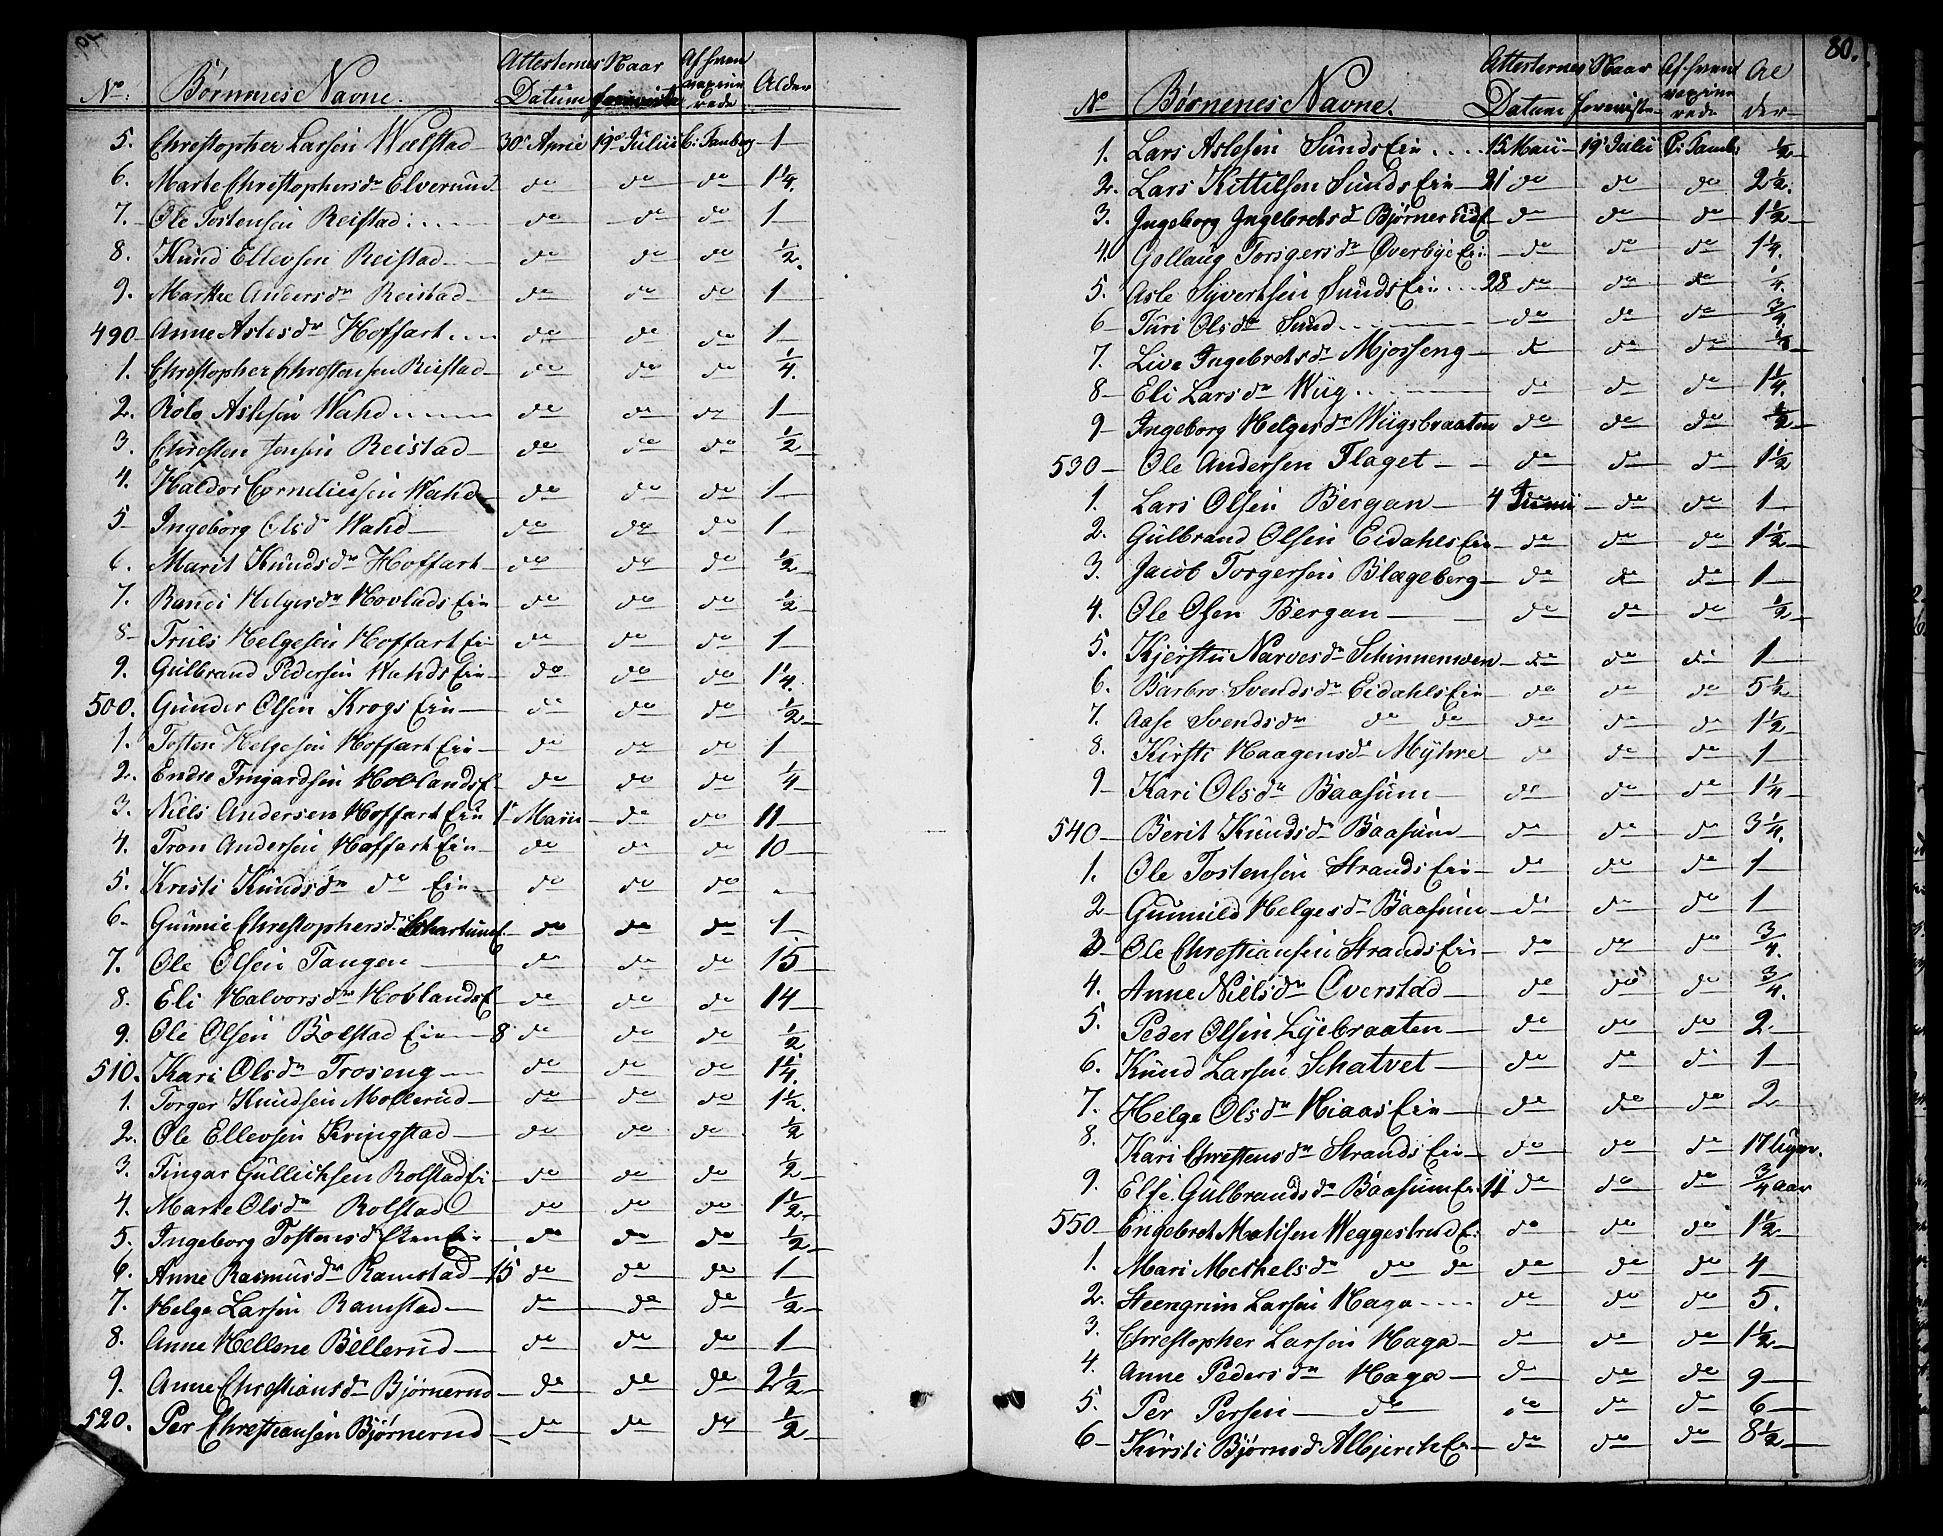 No. Børnenes Navne. Attesternes Datum Naar foreviiste Af hvem vaxinerede Alder
5. Christopher Larsen Wælstad 30 April 19 Julii C: Tanberg 1
6. Marte Christophersdr Elverund do do do 1 1/4
7. Ole Tostensen Reistad do do do 1
8. Knud Ellevsen Reistad do do do 1/2
9. Marthe Andersdr Reistad do do do 1
490 Anne Aslesdr Hoffart do do do 1
1. Christopher Christensen Reistad do do do 1/4
2. Rolo Aslesen Wahd do do do 1
3. Christen Jensen Reistad do do do 1/2
4. Haldor Corneliusen Wahd do do do 1
5 Ingeborg Olsdr Wahd do do do 1
6. Marit Knudsdr Hoffart do do do 1/2
7. Randi Helgesdr Hovlads Ein do do do 1/2
8 Truls Helgesen Hoffart Ei do do do 1
9. Gulbrand Pedersen Wahds Ein do do do 1 1/4
500. Gunder Olsen Krogs Ein do do do 1/2
1. Tosten Helgesen Hoffart Ein do do do 1
2. Endre Tingardsen Hovlands E do do do 1/4
3. Niels Andersen Hoffart Ein 1 Maii do do 11
4. Tron Andersen Hoffart Ein do do do 10
5. Kristi Knudsdr do Ein do do do
6 Gunnie Christophersd Schartum E do do do 1
7. Ole Olsen Tangen do do do 15
8. Eli Halvorsdr Hovlands E do do do 14
9. Ole Olsen Bolstad Ein 8 do do do 1/2
510. Kari Olsdr Troseng do do do 1 1/4
1. Torger Knudsen Mollerud do do do 1 1/2
2. Ole Ellevsen Kringstad do do do 1/2
3. Tingar Gullichsen Rolstad Ei do do do 1/2
4. Marte Olsdr Rolstad do do do 1 1/2
5. Ingeborg Tostensd Eken Ein do do do 1/2
6. Anne Rasmusdr Ramstad 15 do do do 1
7. Helge Larsen Ramstad do do do 1/2
8. Anne Hellene Bellerud do do do 1
9. Anne Christiansdr Bjørnerud do do do 2 1/2
520. Per Christiansen Bjørnerud do do do 1/2
80.
No Børnenes Navne. Attesternes Datum Naar foreviiste Af hvem vaxinerede Alder
1. Lars Aslesen Sunds Ein 15 Maii 19 Julii C: Tanb. 1/2
2. Lars Kittilsen Sunds Ein 21 do do do 2 1/2
3. Ingeborg Ingebretsd Bjørnerud E do do do 1 1/2
4. Gollaug Torgersdr Overbye Ei do do do 1 1/4
5. Asle Syvertsen Sunds Ein 28 do do do 1/4
6 Turi Olsdr Sund do do do 3/4
7. Live Ingebretsdr Mjosseng do do do
8 Eli Larsdr Wiig do do do 1 1/4
9 Ingeborg Helgesdr Wiigsbraaten do do do 1/2
530 Ole Andersen Flaget do do do 1 1/2
1. Lars Olsen Bergan 4 Junii do do 1
2. Gulbrand Olsen Eidahls Ein do do do 1 1/2
3. Jacob Torgersen Blægeberg do do do 1
4. Ole Olsen Bergan do do do 1/2
5. Kjersti Narvesdr Schinnemoen do do do 1
6. Barbro Svendsdr Eidahls Ein do do do 5 1/2
7. Aase Svendsdr do do do do do 1 1/2
8. Kirsti Haagensdr Myhre do do do 1
9 Kari Olsdr Baasum do do do 1 1/4
540 Berit Knudsdr Baasum do do do 3 1/4
1. Ole Tostensen Strands Ein do do do 1
2 Gunnild Helgesdr Baasum do do do 1
3 Ole Christiansen Strands Ein do do do 3/4
4. Anne Nielsdr Overstad do do do 3/4
5. Peder Olsen Lyebraaten do do do 2
6. Knud Larsen Schatvet do do do 1
7. Helge Olsdr Hiaas Ein do do do 2
8. Kari Christensdr Strands Ein do do do 17 Uger.
9. Elsi Gulbrandsdr Baasum Ei 11 do do do 3/4 aar
550 Engebret Matisen Weggestrud E: do do do 1 1/2
1. Mari Mechelsdr do do do do do 4
2. Steengrim Larsen Haga do do do 5.
3. Christopher Larsen Haga do do do 1 1/2
4. Anne Pedersdr Haga do do do 9
5. Per Persen do do do do 6
6 Kirsti Bjørnsd Albjerch Ei do do do 8 1/2